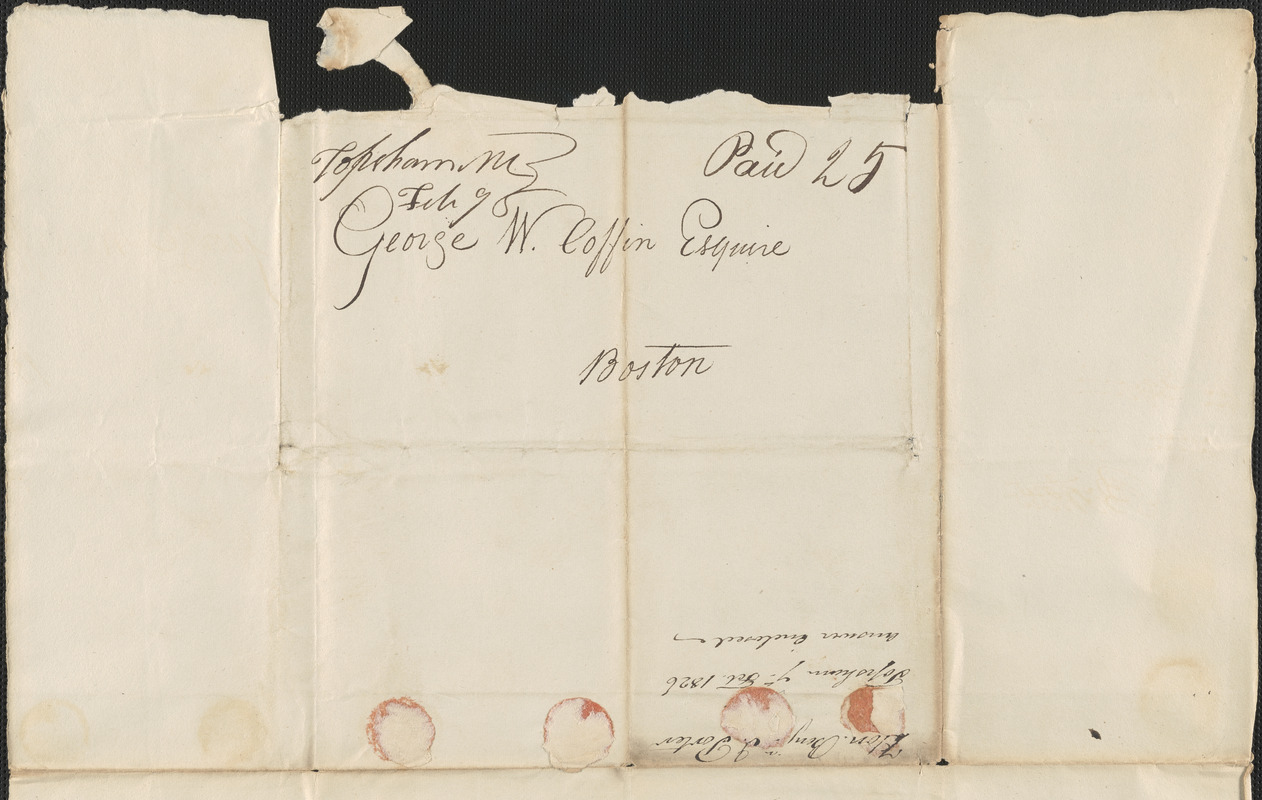 Topsham Me
Paid 25
Feb 9
George W. Coffin Esquire
Boston
Hon. Benj. J. Porter
Topsham 7th Feb. 1826
answer enclosed